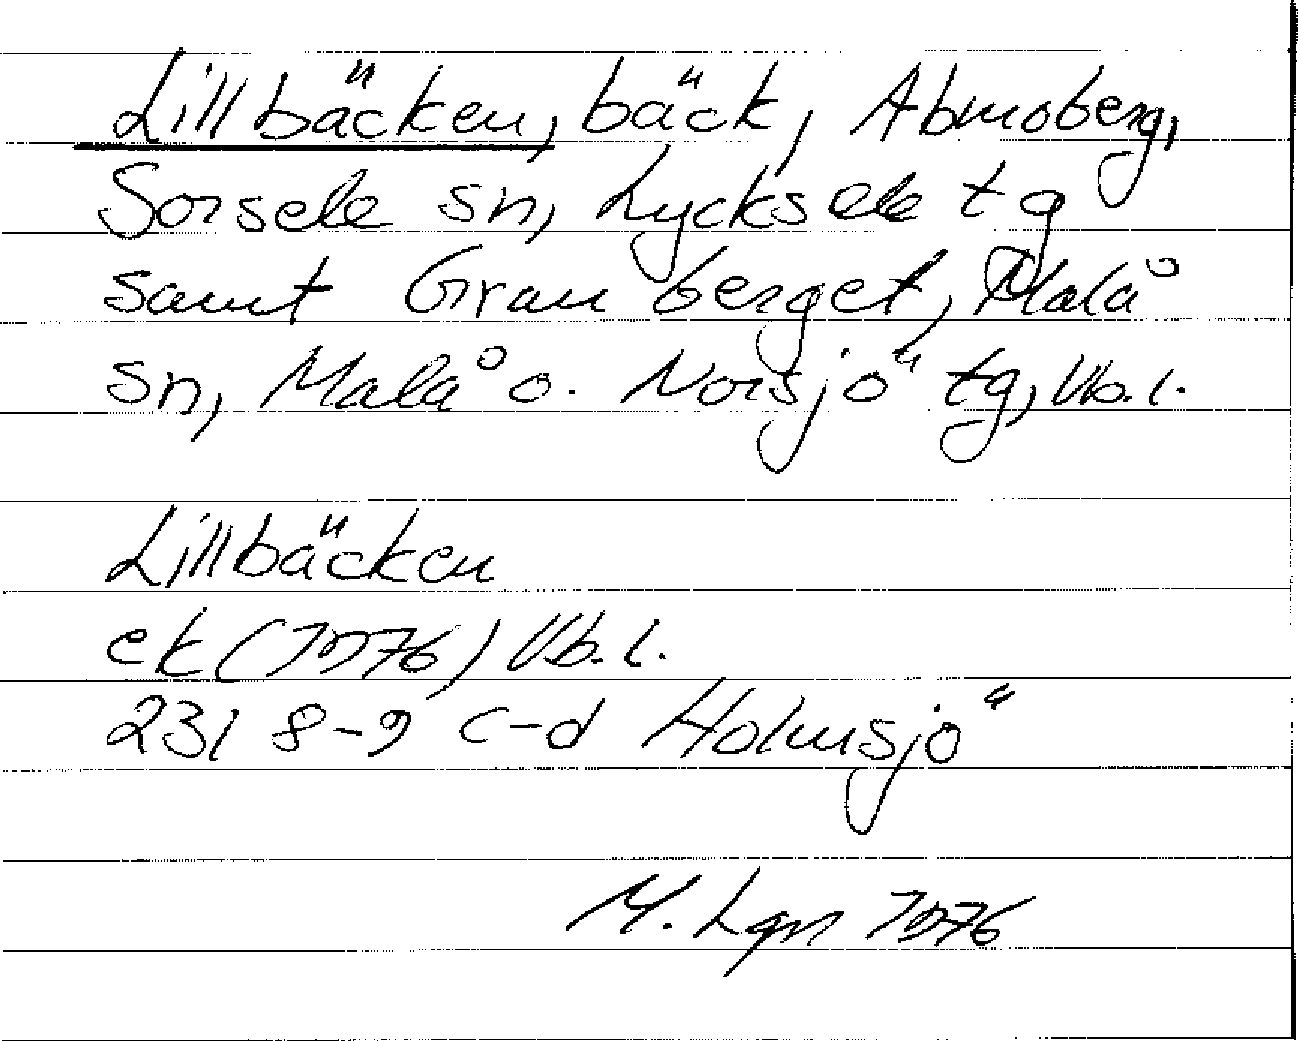 Lillbäcken, bäck, Abmoberg,
Sorsele sn, Lycksele tg
samt Granberget, Malå
sn, Malå o. Norsjö tg, Vb. l.
Lillbäcken
ek (1976) Vb. l.
23I 8-9 c-d Holmsjö
M. Lgn 1976